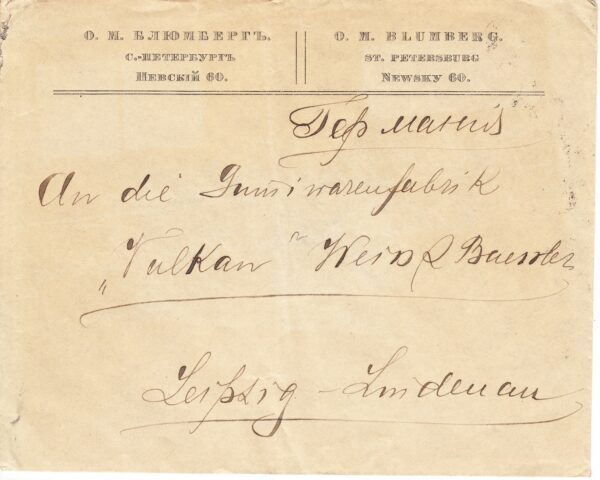 О. М. БЛЮМБЕРГЪ.
С.-ПЕТЕРБУРГЪ
Невскій 60.
O. M. BLUMBERG.
ST. PETERSBURG
Newsky 60.
Германія
An die Gum̅iwarenfabrik
„Vulkan" Weiss & Baessler
Leipzig - Lindenau